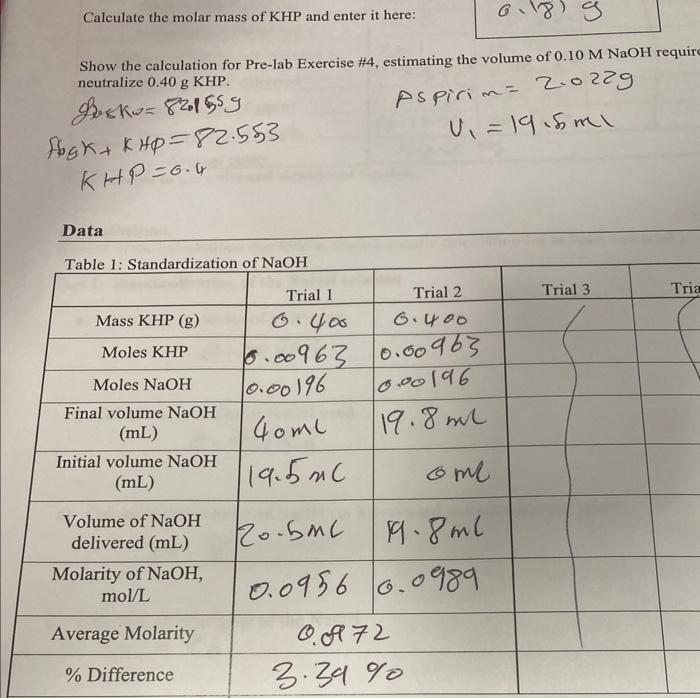 Calculate the molar mass of KHP and enter it here:
0.181 g
Show the calculation for Pre-lab Exercise #4, estimating the volume of 0.10 M NaOH require
neutralize 0.40 g KHP.
Aspirin = 2.022g
V₁ = 19.5 ml
KHP = 82.553
KHP = 0.4
Data
Table 1: Standardization of NaOH
Trial 1 Trial 2 Trial 3 Tria
Mass KHP (g) 0.400 0.400
Moles KHP 0.00963 0.00963
Moles NaOH 0.00196 0.00196
Final volume NaOH
(mL) 40mL 19.8 mL
Initial volume NaOH
(mL) 19.5 mL 0 mL
Volume of NaOH
delivered (mL) 20.5mL 19.8mL
Molarity of NaOH,
mol/L 0.0956 0.0989
Average Molarity 0.0972
% Difference 3.39 %